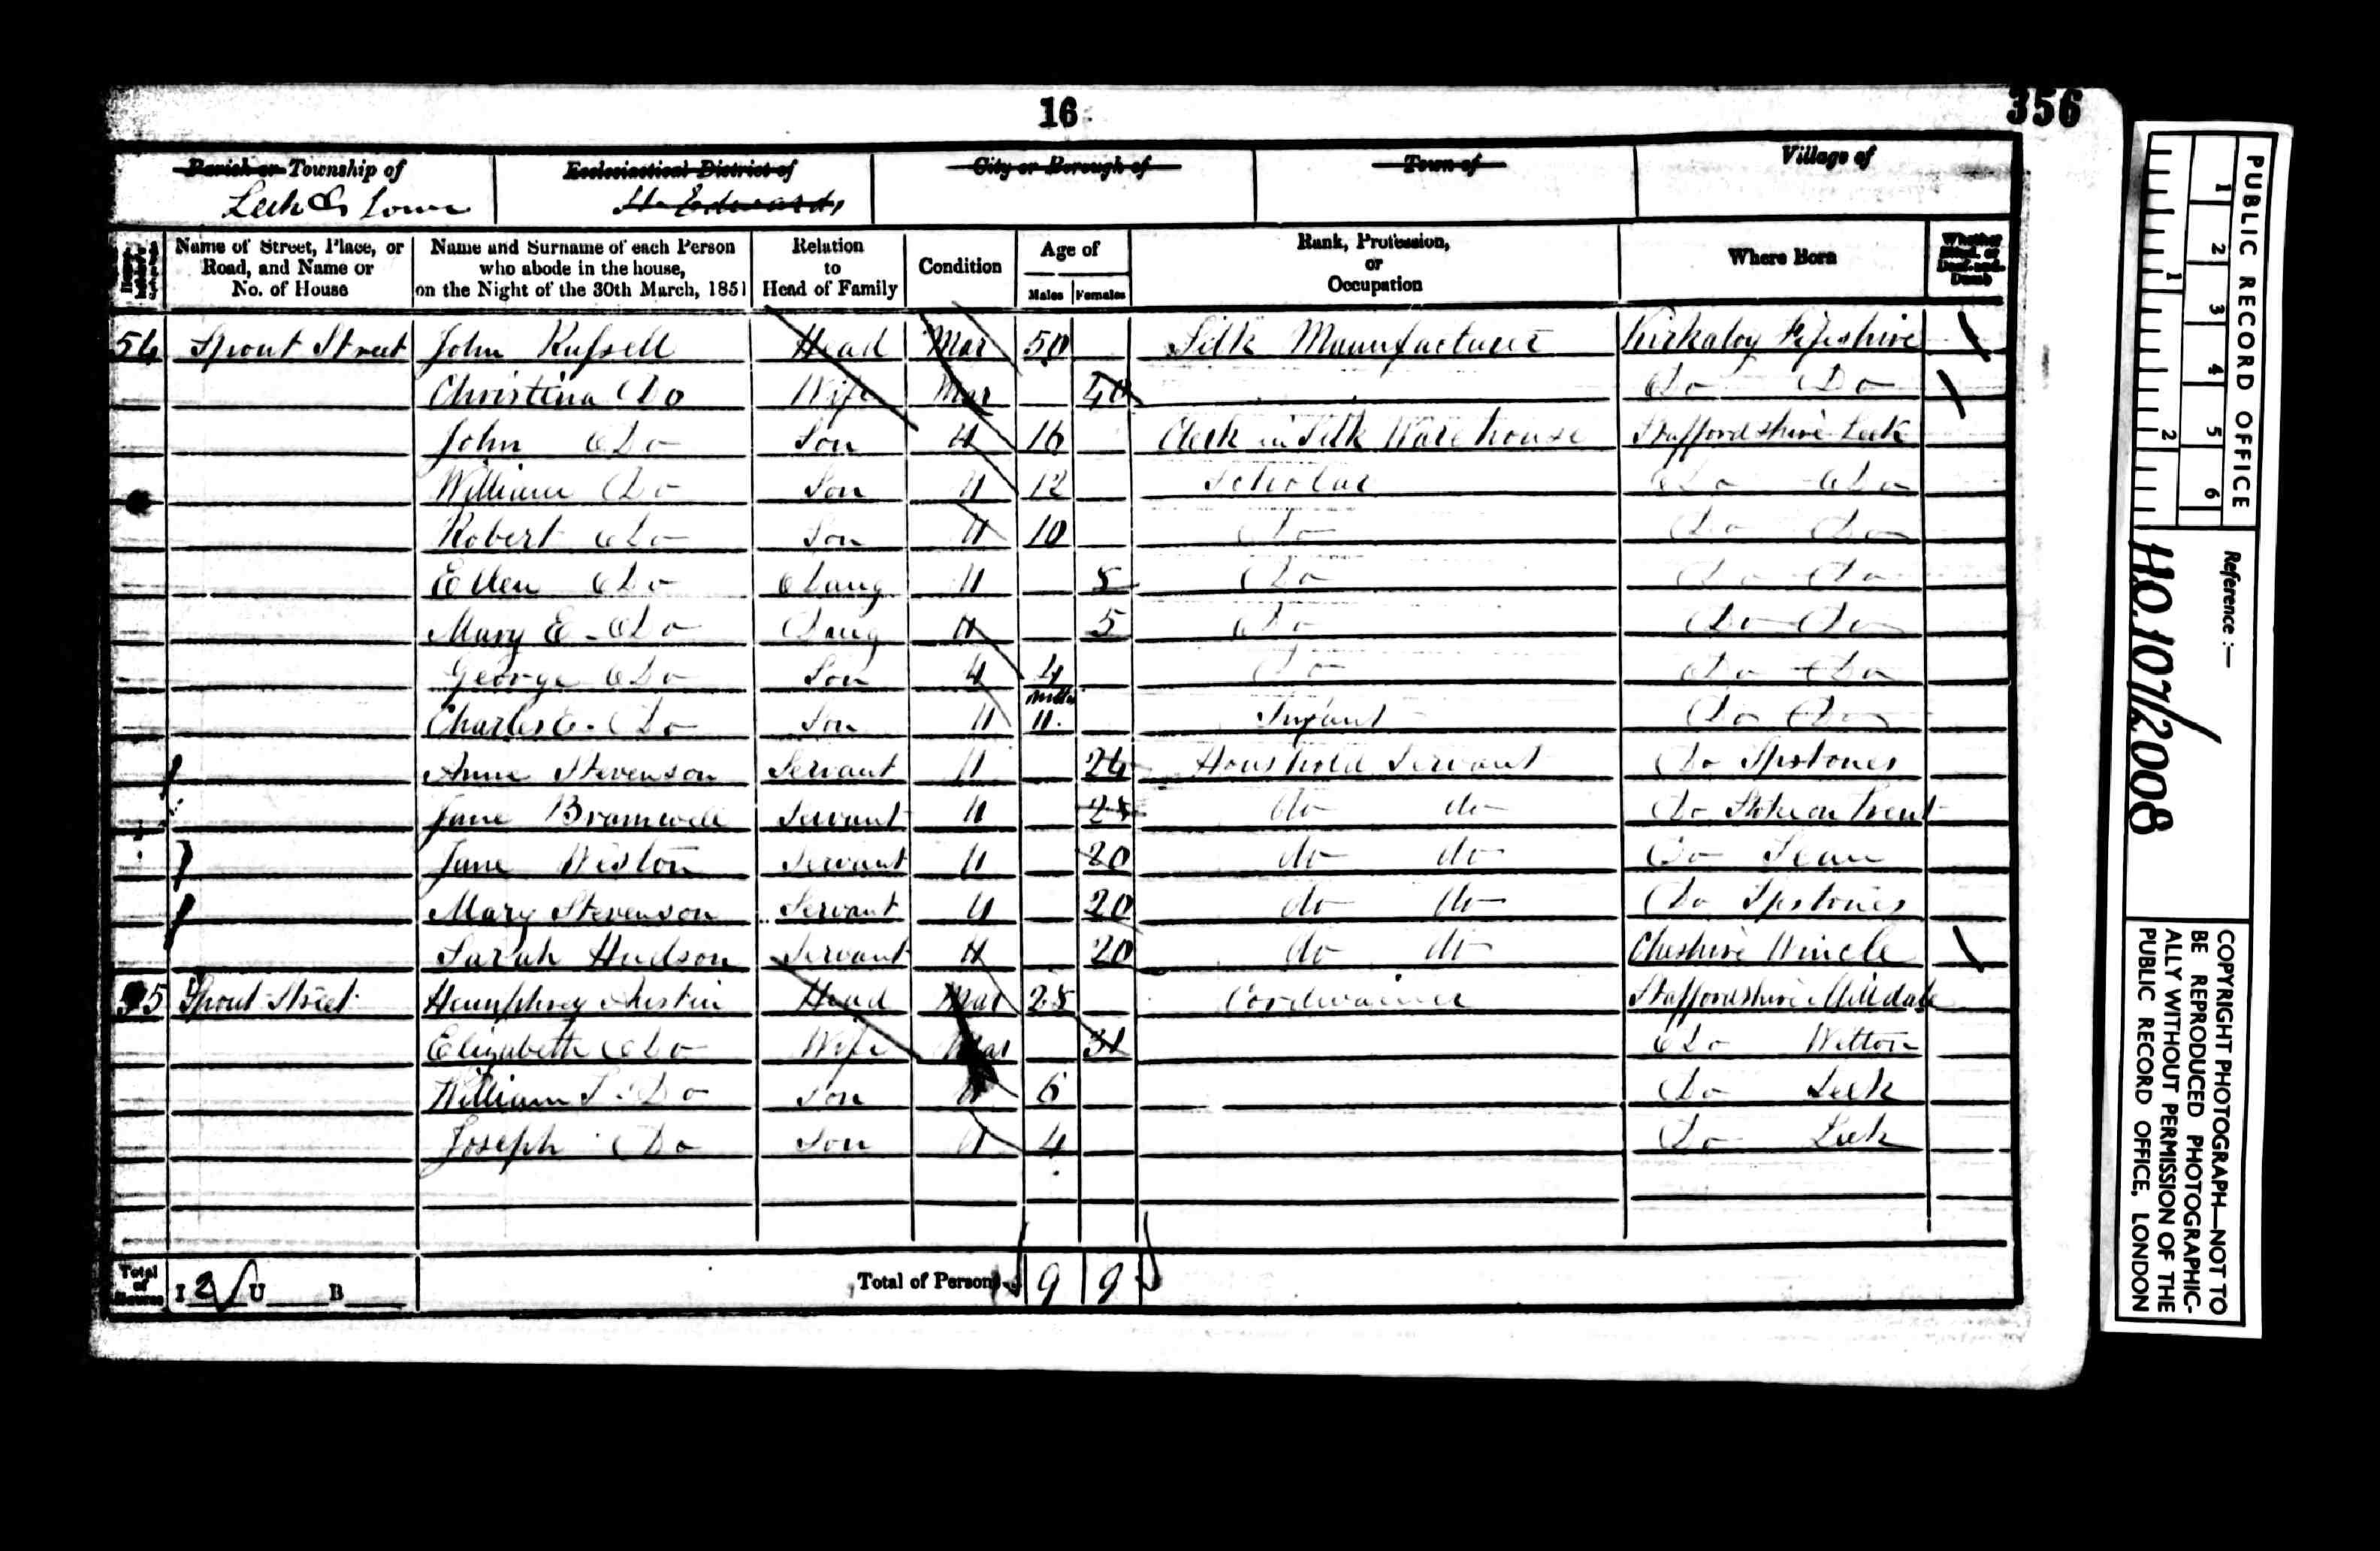 16
356
Parish or Township of
Leek & Lowe
Ecclesiastical District of
St. Edwards,
City or Borough of
Town of
Village of
Name of Street, Place, or Road, and Name or No. of House
Name and Surname of each Person who abode in the house, on the Night of the 30th March, 1851
Relation to Head of Family
Condition
Age of
Males Females
Rank, Profession, or Occupation
Where Born
Whether Blind, or Deaf-and-Dumb
54 Spout Street John Russell Head Mar 50 Silk Manufacturer Kirkaloy Fifeshire
Christina Do Wife Mar 40 Do Do
John Do Son U 16 Clerk in Silk Warehouse Staffordshire Leek
William Do Son U 12 Scholar Do Do
Robert Do Son U 10 Do Do Do
Ellen Do Daug U 8 Do Do Do
Mary E. Do Daug U 5 Do Do Do
George Do Son U 4 Do Do Do
Charles E. Do Son U Mths 11. Infant Do Do
Anne Stevenson Servant U 24 Household Servant Do Ipstones
Jane Bramwell Servant U do do Do Stoke on Trent
Jane Weston Servant U 20 do do Do Tean
Mary Stevenson Servant U 20 do do Do Ipstones
Sarah Hudson Servant U 20 do do Cheshire Wincle
55 Spout Street Humphrey Austin Head Mar 28 Cordwainer Staffordshire Milldale
Elizabeth Do Wife Mar 31 Do Wetton
William Do Son U 6 Do Leek
Joseph Do Son U 4 Do Leek
Total of Houses I 2 U B Total of Persons 9 9
PUBLIC RECORD OFFICE
1 2 3 4 5 6
1 2
Reference :—
HO.107/2008
COPYRIGHT PHOTOGRAPH—NOT TO
BE REPRODUCED PHOTOGRAPHIC-
ALLY WITHOUT PERMISSION OF THE
PUBLIC RECORD OFFICE, LONDON